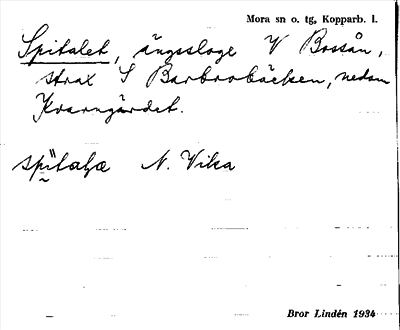 Mora sn o. tg, Kopparb. l.
Spitalet, ängssloge V Bossån,
strax S Barbrobäcken, nedom
Kvarngärdet.
N. Vika
Bror Lindén 1934